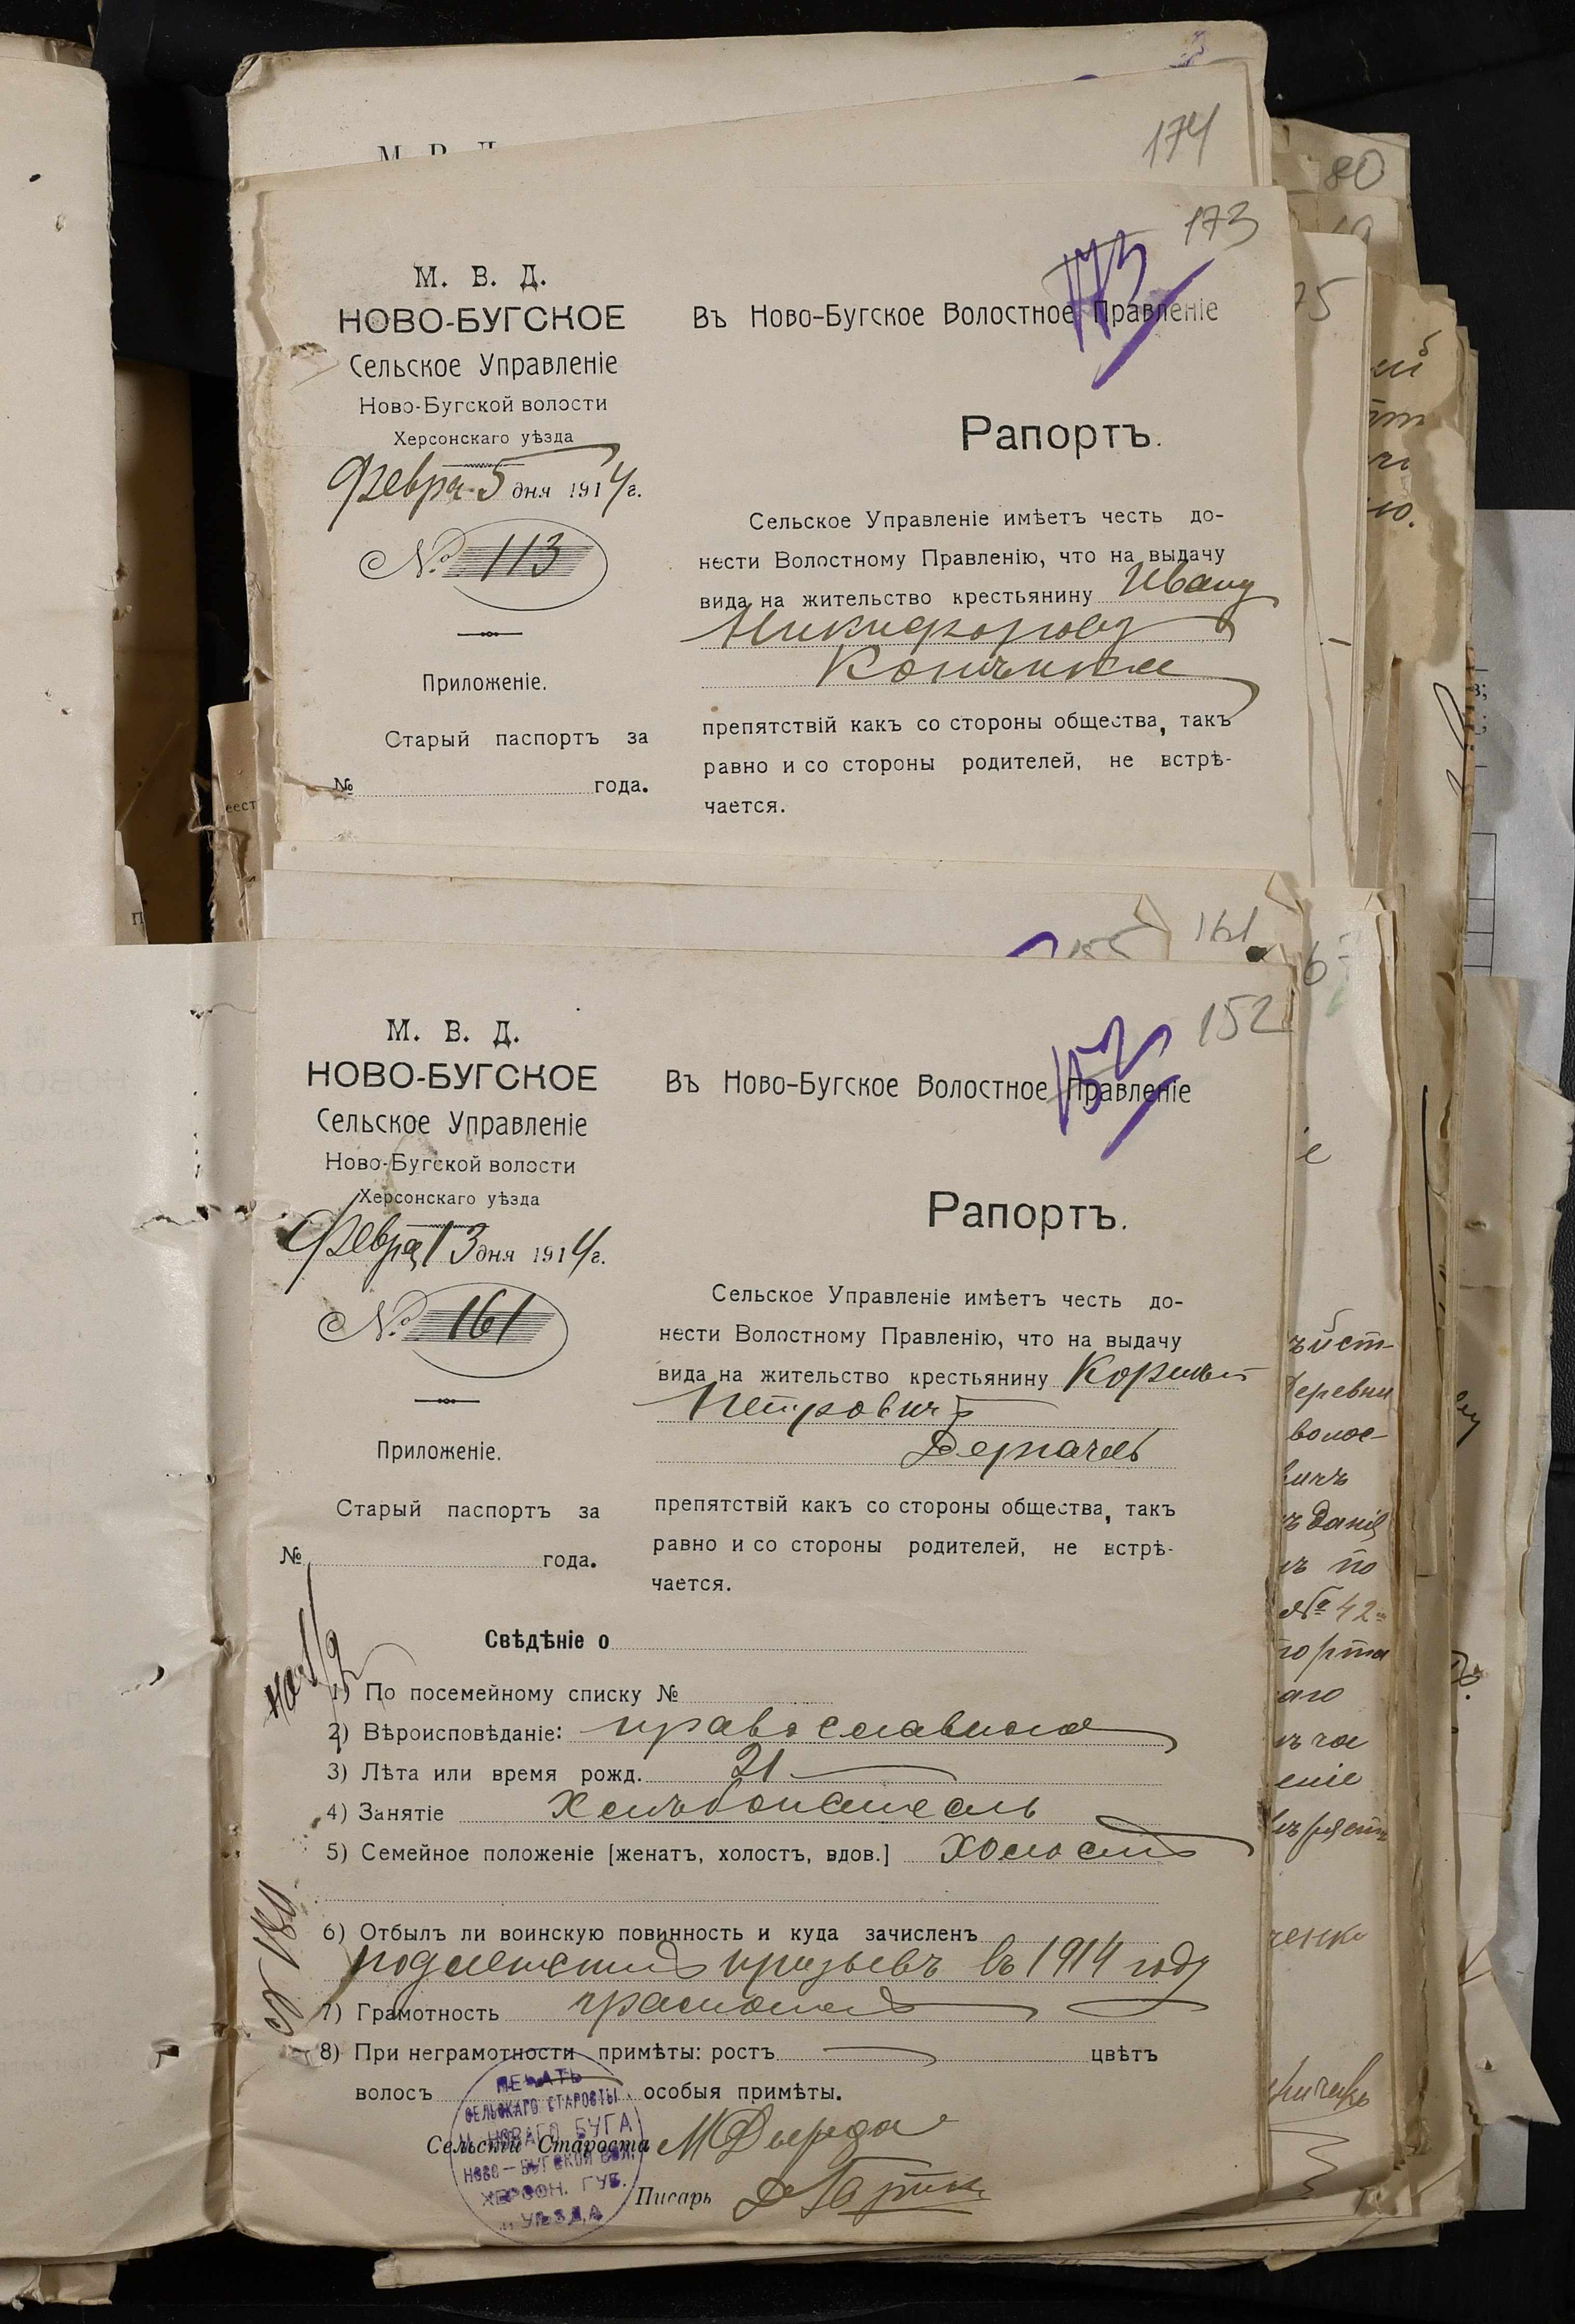 М. В. Д.
174
80
173
173
М. В. Д.
НОВО-БУГСКОЕ
Сельское Управленіе
Ново-Бугской волости
Херсонскаго уѣзда
Февра 5 дня 1914 г.
№ 113
Приложеніе.
Старый паспортъ за
№ года.
Въ Ново-Бугское Волостное Правленіе
Рапортъ.
Сельское Управленіе имѣетъ честь до-
нести Волостному Правленію, что на выдачу
вида на жительство крестьянину Ивану
Никифорову
препятствій какъ со стороны общества, такъ
равно и со стороны родителей, не встрѣ-
чается.
161
152
152
М. В. Д.
НОВО-БУГСКОЕ
Сельское Управленіе
Ново-Бугской волости
Херсонскаго уѣзда
Февра 13 дня 1914 г.
№ 161
Приложеніе.
Старый паспортъ за
№ года.
Въ Ново-Бугское Волостное Правленіе
Рапортъ.
Сельское Управленіе имѣетъ честь до-
нести Волостному Правленію, что на выдачу
вида на жительство крестьянину
Петровичъ
Дергачевъ
препятствій какъ со стороны общества, такъ
равно и со стороны родителей, не встрѣ-
чается.
Свѣдѣніе о
на 1/2
1) По посемейному списку №
2) Вѣроисповѣданіе: православное
3) Лѣта или время рожд. 21
4) Занятіе Хлѣбопашець
5) Семейное положеніе [женатъ, холостъ, вдов.] холостъ
6) Отбылъ ли воинскую повинность и куда зачисленъ
подлежитъ призывъ въ 1914 году
7) Грамотность грамотенъ
8) При неграмотности примѣты: ростъ цвѣтъ
волосъ особыя примѣты.
Сельскій Староста
Писарь
ПЕЧАТЬ
СЕЛЬСКАГО СТАРОСТЫ
НОВАГО БУГА
НОВО-БУГСКОЙ ВОЛ.
ХЕРСОН. ГУБ.
УѢЗДА